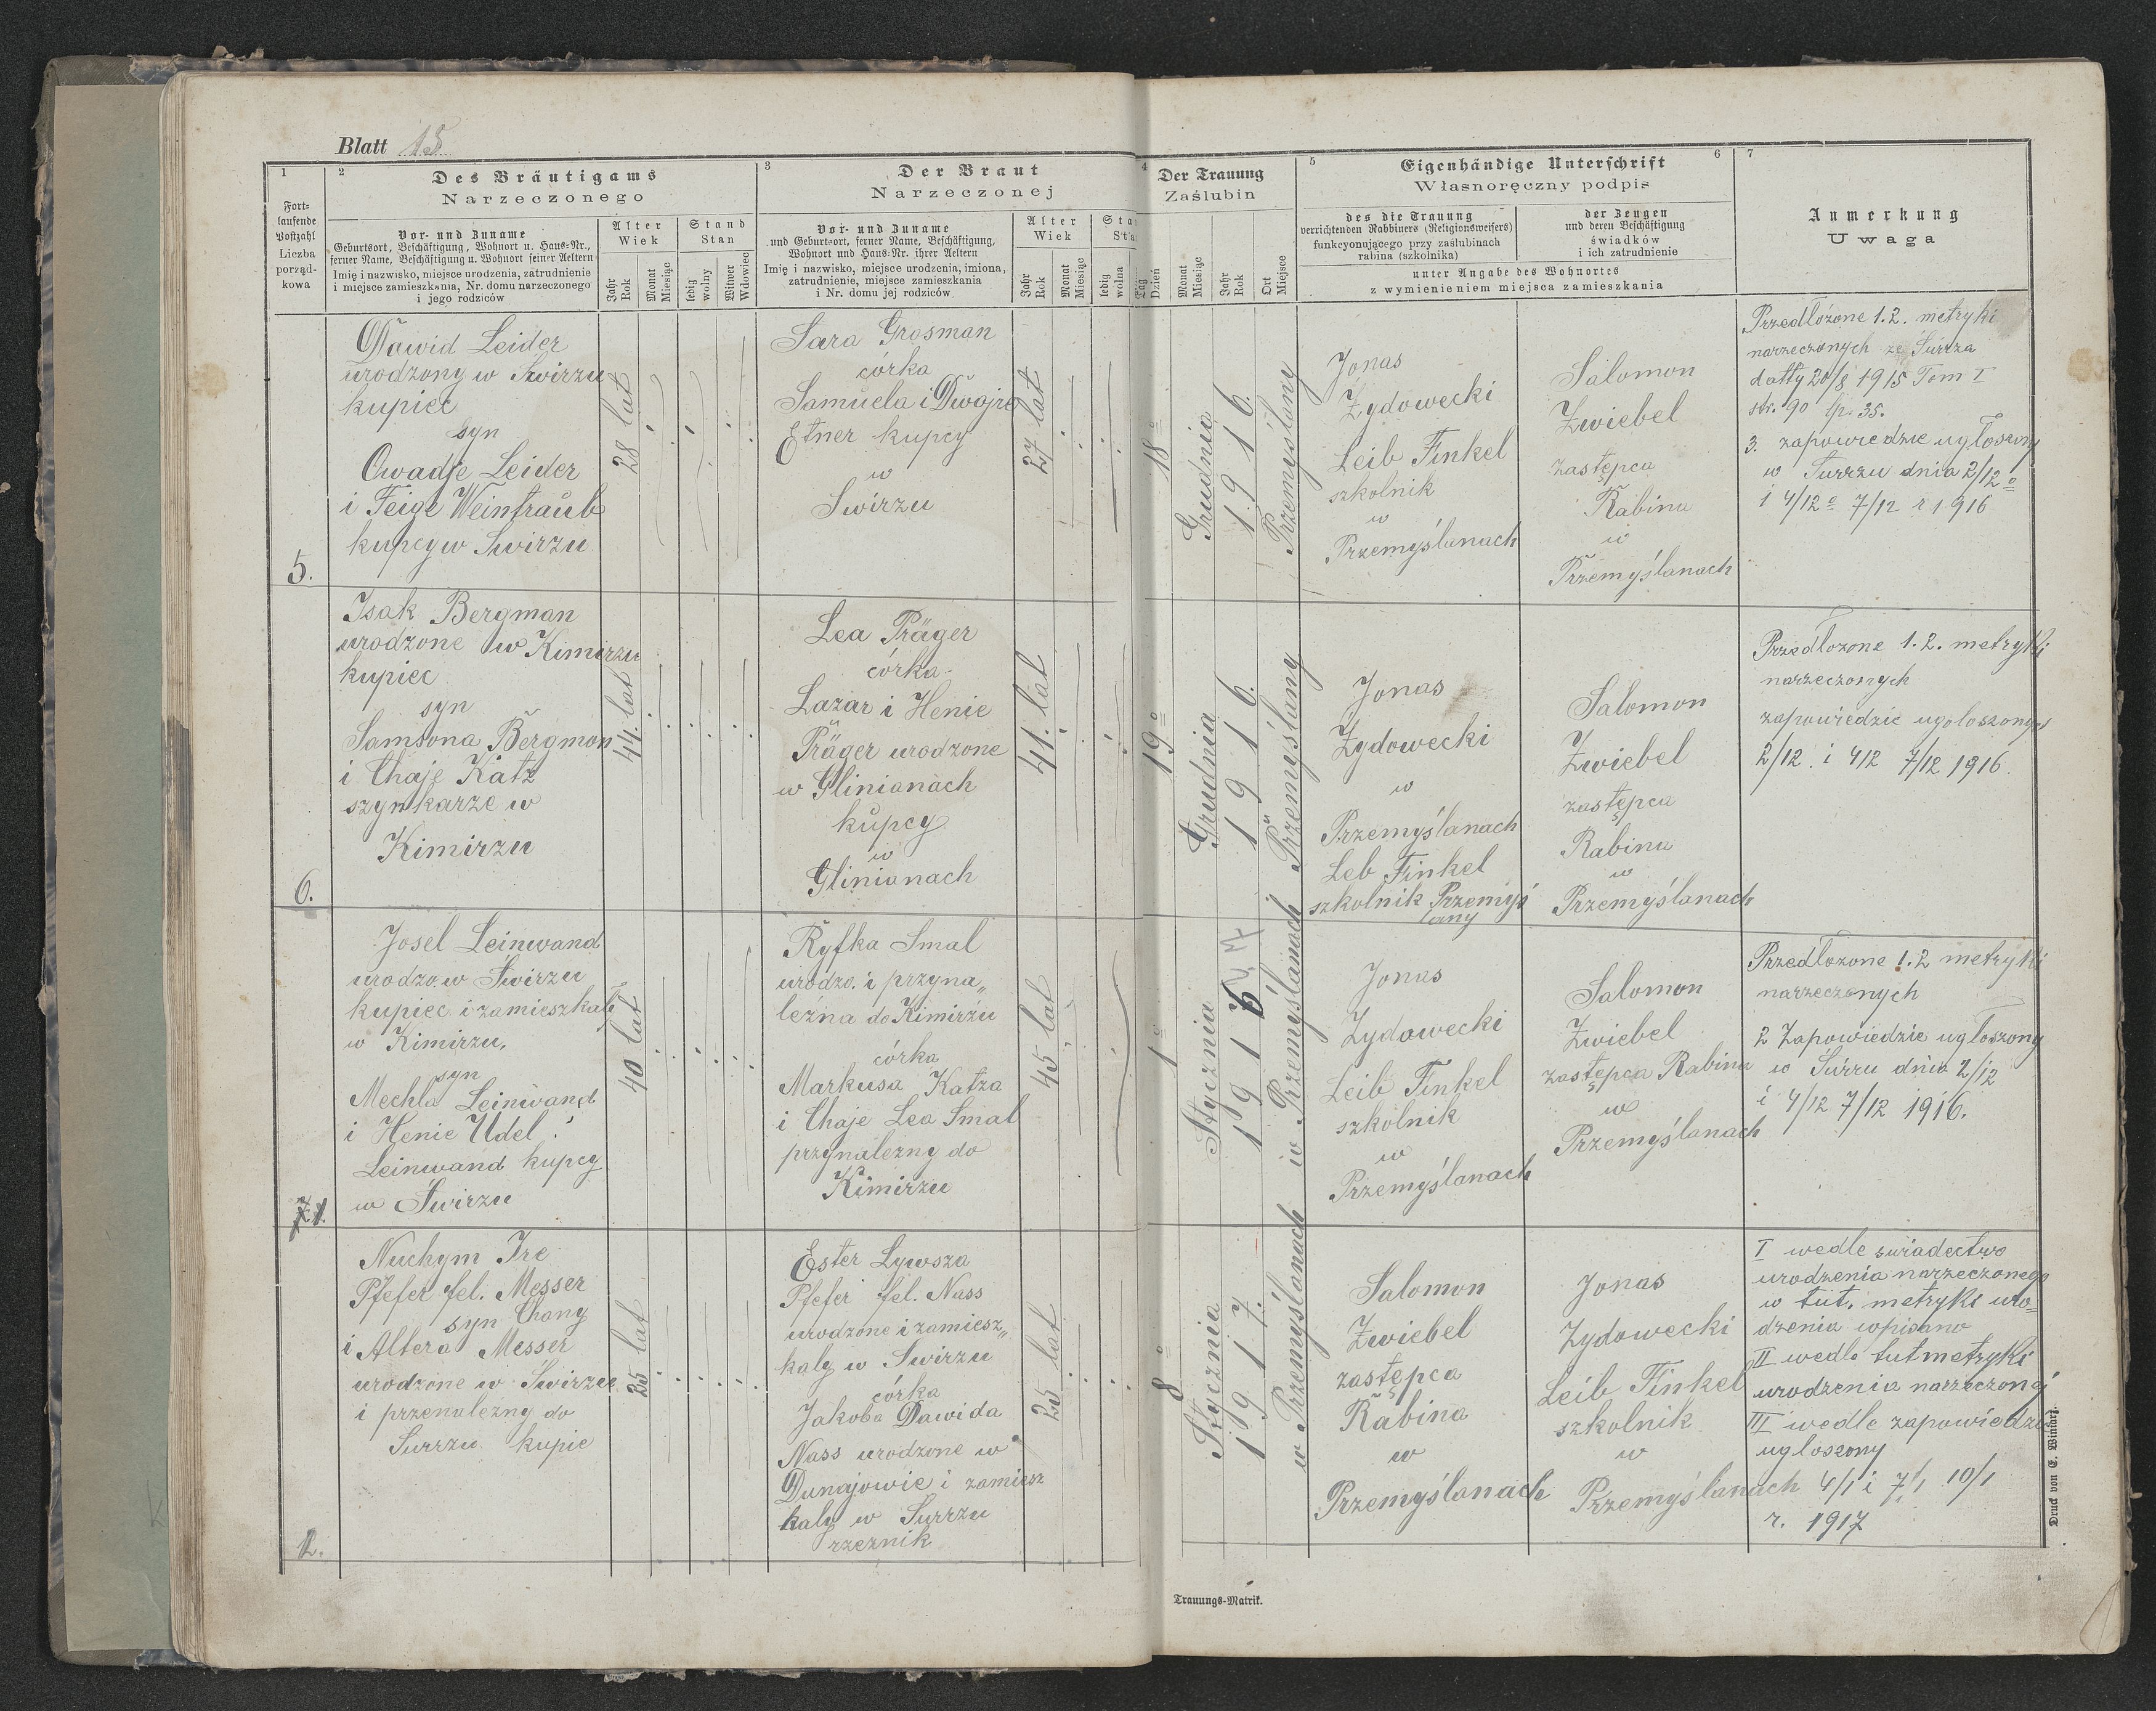 Blatt 15
1
2
Des Bräutigams
Narzeczonego
3
Der Braut
Narzeczonej
4
Der Trauung
Zaślubin
5
Eigenhändige Unterschrift
6
Własnoręczny podpis
7
Anmerkung
Uwaga
Fort-
laufende
Postzahl
Liczba
porząd-
kowa
Vor- und Zuname
Geburtsort, Beschäftigung, Wohnort u. Haus-Nr.,
ferner Name, Beschäftigung u. Wohnort seiner Aeltern
Imię i nazwisko, miejsce urodzenia, zatrudnienie
i miejsce zamieszkania, Nr. domu narzeczonego
i jego rodziców
Alter
Wiek
Jahr
Rok
Monat
Miesiąc
Stand
Stan
ledig
wolny
Witwer
Wdowiec
Vor- und Zuname
und Geburtsort, ferner Name, Beschäftigung,
Wohnort und Haus-Nr. ihrer Aeltern
Imię i nazwisko, miejsce urodzenia, imiona,
zatrudnienie, miejsce zamieszkania
i Nr. domu jej rodziców
Alter
Wiek
Jahr
Rok
Monat
Miesiąc
ledig
wolna
Tag
Dzień
Monat
Miesiąc
Jahr
Rok
Ort
Miejsce
des die Trauung
verrichtenden Rabbiners (Religionsweisers)
funkcyonującego przy zaślubinach
rabina (szkolnika)
der Zeugen
und deren Beschäftigung
świadków
i ich zatrudnienie
unter Angabe des Wohnortes
z wymienieniem miejsca zamieszkania
5.
Dawid Leider
urodzony w Swirzu
kupiec
syn
Owadje Leider
i Feige Weintraub
kupcy w Swirzu
28 lat
Sara Grosman
córka
Samuela i Dwojre
Etner kupcy
w
Swirzu
27 lat
18
Grudnia
1916.
Przemyślany
Jonas
Zydowecki
Leib Finkel
szkolnik
w
Przemyślanach
Salomon
Zwiebel
zastępca
Rabina
w
Przemyślanach
Przedlożone 1.2. metryki
narzeczonych ze
datty 20/8 1915 Tom I
str. 90 lp. 35.
3. zapowiedzie ugłoszony
w dnia 2/12
i 4/12 7/12 r 1916
6.
Isak Bergman
urodzone w Kimirzu
kupiec
syn
Samsona Bergmon
i Chaje Katz
szynkarze w
Kimirzu
44. lat
Lea Präger
córka
Lazar i Henie
Präger urodzone
w Glinianach
kupcy
w
Glinianach
41. lat
19
Grudnia
1916.
Przemyślany
Jonas
Zydowecki
w
Przemyślanach
Leb Finkel
szkolnik Przemyś
lany
Salomon
Zwiebel
zastępca
Rabina
w
Przemyślanach
Przedlozone 1.2. metryki
narzeczonych
zapowiedzie ugoloszonych
2/12. i 412 7/12 1916.
1.
Josel Leinwand
urodzo. w Swirzu
kupiec i zamieszkały
w Kimirzu,
syn
Mechla Leinwand
i Henie Udel
Leinwand kupcy
w Swirzu
40 lat
Ryfka Smal
urodzo. i przyna„
leżna do Kimirzu
córka
Markusa Katza
i Chaje Lea Smal
przynalezny do
Kimirzu
45 lat
1
Stycznia
w Przemyślanach
Jonas
Zydowecki
Leib Finkel
szkolnik
w
Przemyślanach
Salomon
Zwiebel
zastępca Rabina
w
Przemyślanach
Przedlozone 1.2 metryki
narzeczonych
2 Zapowiedzie ugloszony
w dnia 2/12
i 4/12 7/12 1916.
2.
Nuchym Ire
Pfefer fel. Messer
syn Chany
i Altera Messer
urodzone w Swirzu
i przenalezny do
kupie
25 lat
Ester Lywsza
Pfefer fel. Nass
urodzone i zamiesz„
kaly w Swirzu
córka
Jakoba Dawida
Nass urodzone w
Dunajowie i zamiesz
kaly w
rzeznik
25 lat
8
Stycznia
1917.
w Przemyślanach
Salomon
Zwiebel
zastępca
Rabina
w
Przemyślanach
Jonas
Zydowecki
Leib Finkel
szkolnik
w
Przemyślanach
I wedle swiadectwo
urodzenia narzeczonego
w tut. metryki uro=
dzenia wpisano
II wedle tut metryki
urodzenia narzeczonej
III wedle zapowiedzi
ugloszony
4/1 i 7/1 10/1
r. 1917
Druck von E. Winiarz.
Trauungs-Matrik.